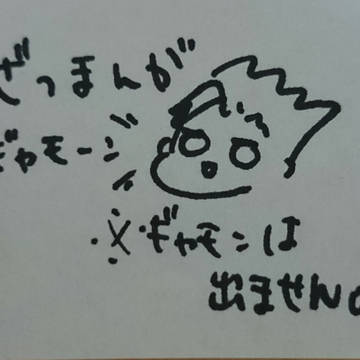 ざつまんが
ギャモージ
※ギャモンは
出ません。